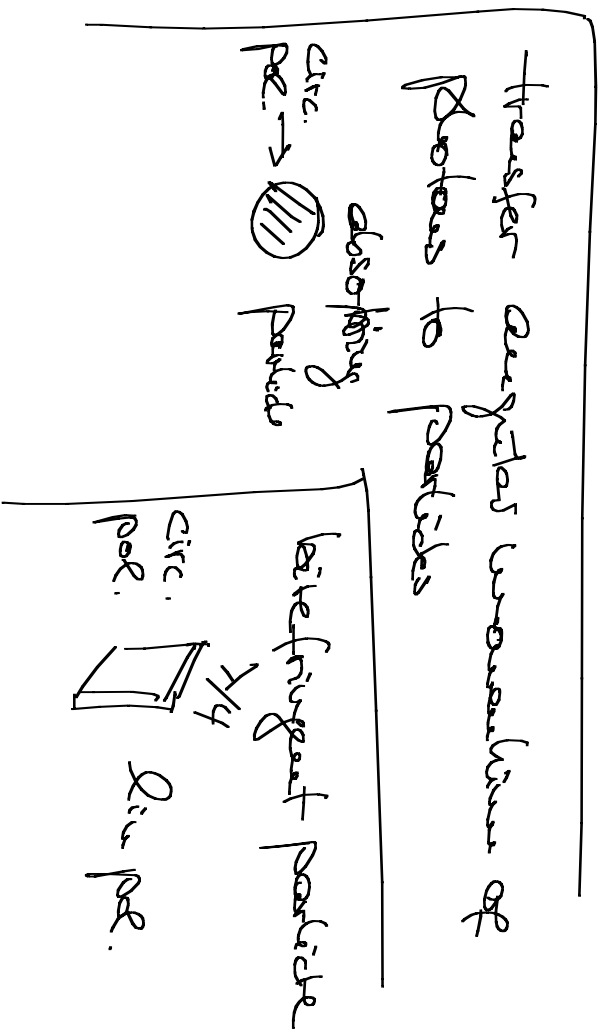 transfer angular momentum of
photons to particles
absorbing
circ.
pol. → particle
birefringent particle
λ/4
circ.
pol.
lin pol.